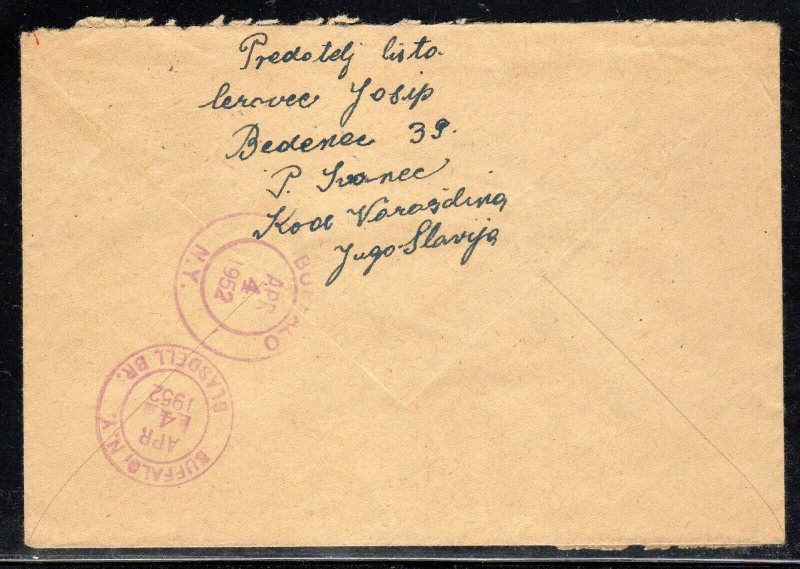 Predotelj lista
lerovec Josip
Bedenec 39.
P. Ivanec
Kod Varaždina
Jugo Slavija
BUFFALO N.Y.
APR
4
1952
BUFFALO, N.Y. BLASDELL BR.
APR
4
1952